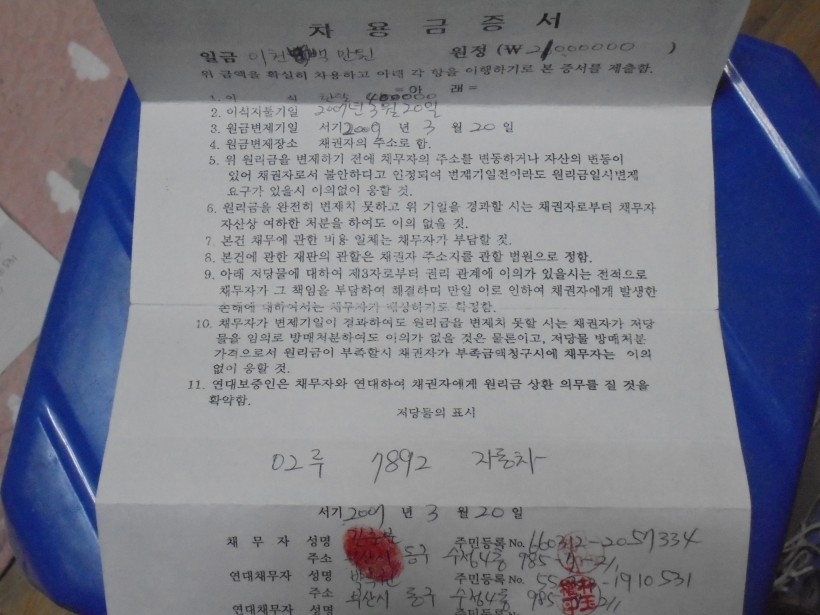 차 용 금 증 서
일금 이천 백 만원 원정 (₩ 21,000,000 )
위 금액을 확실히 차용하고 아래 각 항을 이행하기로 본 증서를 제출함.
= 아 래 =
1. 이 자 400000
2. 이식지불기일 2009년 3월 20일
3. 원금변제기일 서기 2009 년 3 월 20 일
4. 원금변제장소 채권자의 주소로 함.
5. 위 원리금을 변제하기 전에 채무자의 주소를 변동하거나 자산의 변동이
있어 채권자로서 불안하다고 인정되여 변제기일전이라도 원리금일시변제
요구가 있을시 이의없이 응할 것.
6. 원리금을 완전히 변제치 못하고 위 기일을 경과할 시는 채권자로부터 채무자
자산상 여하한 처분을 하여도 이의 없을 것.
7. 본건 채무에 관한 비용 일체는 채무자가 부담할 것.
8. 본건에 관한 재판의 관할은 채권자 주소지를 관할 법원으로 정함.
9. 아래 저당물에 대하여 제3자로부터 권리 관계에 이의가 있을시는 전적으로
채무자가 그 책임을 부담하여 해결하며 만일 이로 인하여 채권자에게 발생한
손해에 대하여서는 채무자가 배상하기로 확정함.
10. 채무자가 변제기일이 경과하여도 원리금을 변제치 못할 시는 채권자가 저당
물을 임의로 방매처분하여도 이의가 없을 것은 물론이고, 저당물 방매처분
가격으로서 원리금이 부족할시 채권자가 부족금액청구시에 채무자는 이의
없이 응할 것.
11. 연대보증인은 채무자와 연대하여 채권자에게 원리금 상환 의무를 질 것을
확약함.
저당물의 표시
02루 7892 자동차
서기 2009 년 3 월 20 일
채 무 자 성명 주민등록No. 660312-2057334
주소 동구 수정4동 985-
연대채무자 성명 주민등록No. -1910531
주소 부산시 동구 수정4동 985-
연대채무자 성명